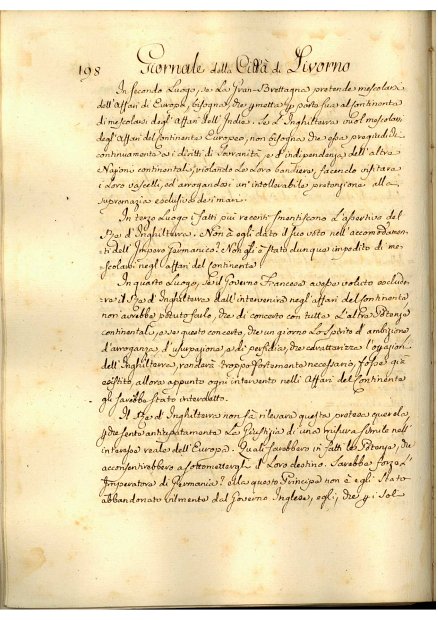 198 Giornale della Città di Livorno
In secondo Luogo, se La Gran-Brettagna pretende mescolarsi
dell'Affari di Europa, bisogna, che permetta per parte sua al Continente
di mescolarsi degl'Affari dell'India. Se L'Inghilterra vuol mescolarsi
degl'Affari del Continente Europeo, non bisogna che essa pregiudichi
continuamente ai diritti di Sovranità, e d'independenza dell'altre
Nazioni continentali, violando Le Loro bandiere, facendo visitare
i Loro vascelli, ed arrogandosi un'intollerabile pretenzione alla
supremazia esclusiva dei mari.
In terzo Luogo i fatti più recenti smentiscono L'assertiva del
Rè d'Inghilterra. Non à egli dato il suo voto nell'accomodamen-
to dell'Impero Germanico? Non gli è stato dunque impedito di me-
scolarsi negl'affari del Continente.
In quarto Luogo, se il Governo Francese avesse voluto esclude-
re il Rè d'Inghilterra dall'intervenire negl'affari del Continente
non avrebbe potuto farlo, che di concerto con tutte L'altre Potenze
continentali, e se questo concerto, che un giorno Lo spirito d'ambizione,
d'arroganza d'usurpazione, e di perfidia, che caratterizza i
dell'Inghilterra, renderà troppo fortemente necessario, fosse già
esistito, allora appunto ogni intervento nelli Affari del Continente
gli sarebbe stato interdetto.
Il Rè d'Inghilterra non fà rilevare questa pretesa querela,
che sente anticipatamente La Giustizia di una misura simile nell'
interesse reale dell'Europa. Quali sarebbero in fatti Le Potenze, che
acconsentirebbero a sottomettergli il Loro destino. Sarebbe forse L'
Imperatore di Germania? Ma questo Principe non è egli stato
abbandonato vilmente dal Governo Inglese, egli, che per i sol-